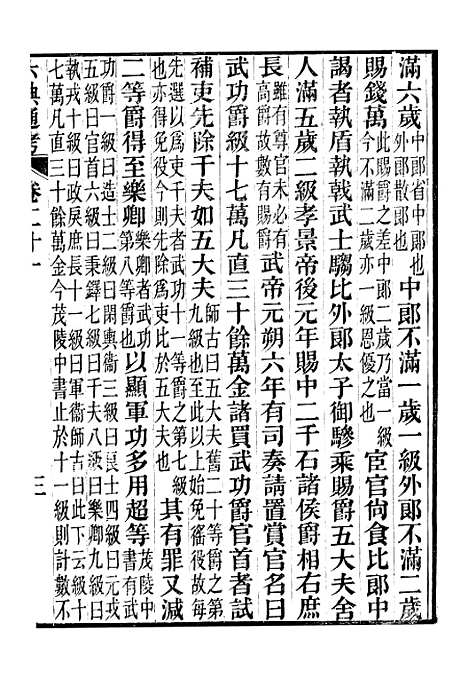 滿六歲中郞省中郞也外郞散郞也中郞不滿一歲一級外郞不滿二歲
賜錢萬此賜爵之差中郞二歲乃當一級今不滿二歲亦一級恩優之也宦官尙食比郞中
謁者執盾執戟武士騶比外郞太子御驂乘賜爵五大夫舍
人滿五歲二級孝景帝後元年賜中二千石諸侯爵相右庶
長雖有尊官未必有高爵故有賜爵武帝元朔六年有司奏請置賞官名曰
武功爵級十七萬凡直三十餘萬金諸買武功爵官首者試
補吏先除千夫如五大夫師古曰五大夫舊二十等爵之第九級也至此以上始免徭役故每
先選以爲吏千夫者武功十一等爵之第七級也亦得免役今則先除爲吏比於五大夫也其有罪又減
二等爵得至樂卿樂卿者武功第八等爵也以顯軍功多用超等茂陵中書有武
功爵一級曰造士二級曰閑輿衞三級曰良士四級曰元戎
五級曰官首六級曰秉鐸七級曰千夫八級曰樂卿九級曰
執戎十級曰政戾庶長十一級曰軍衞師古曰此下云級十
七萬凡直三十餘萬金今茂陵中書止於十一級則計數不
六典通考 卷二十一 三